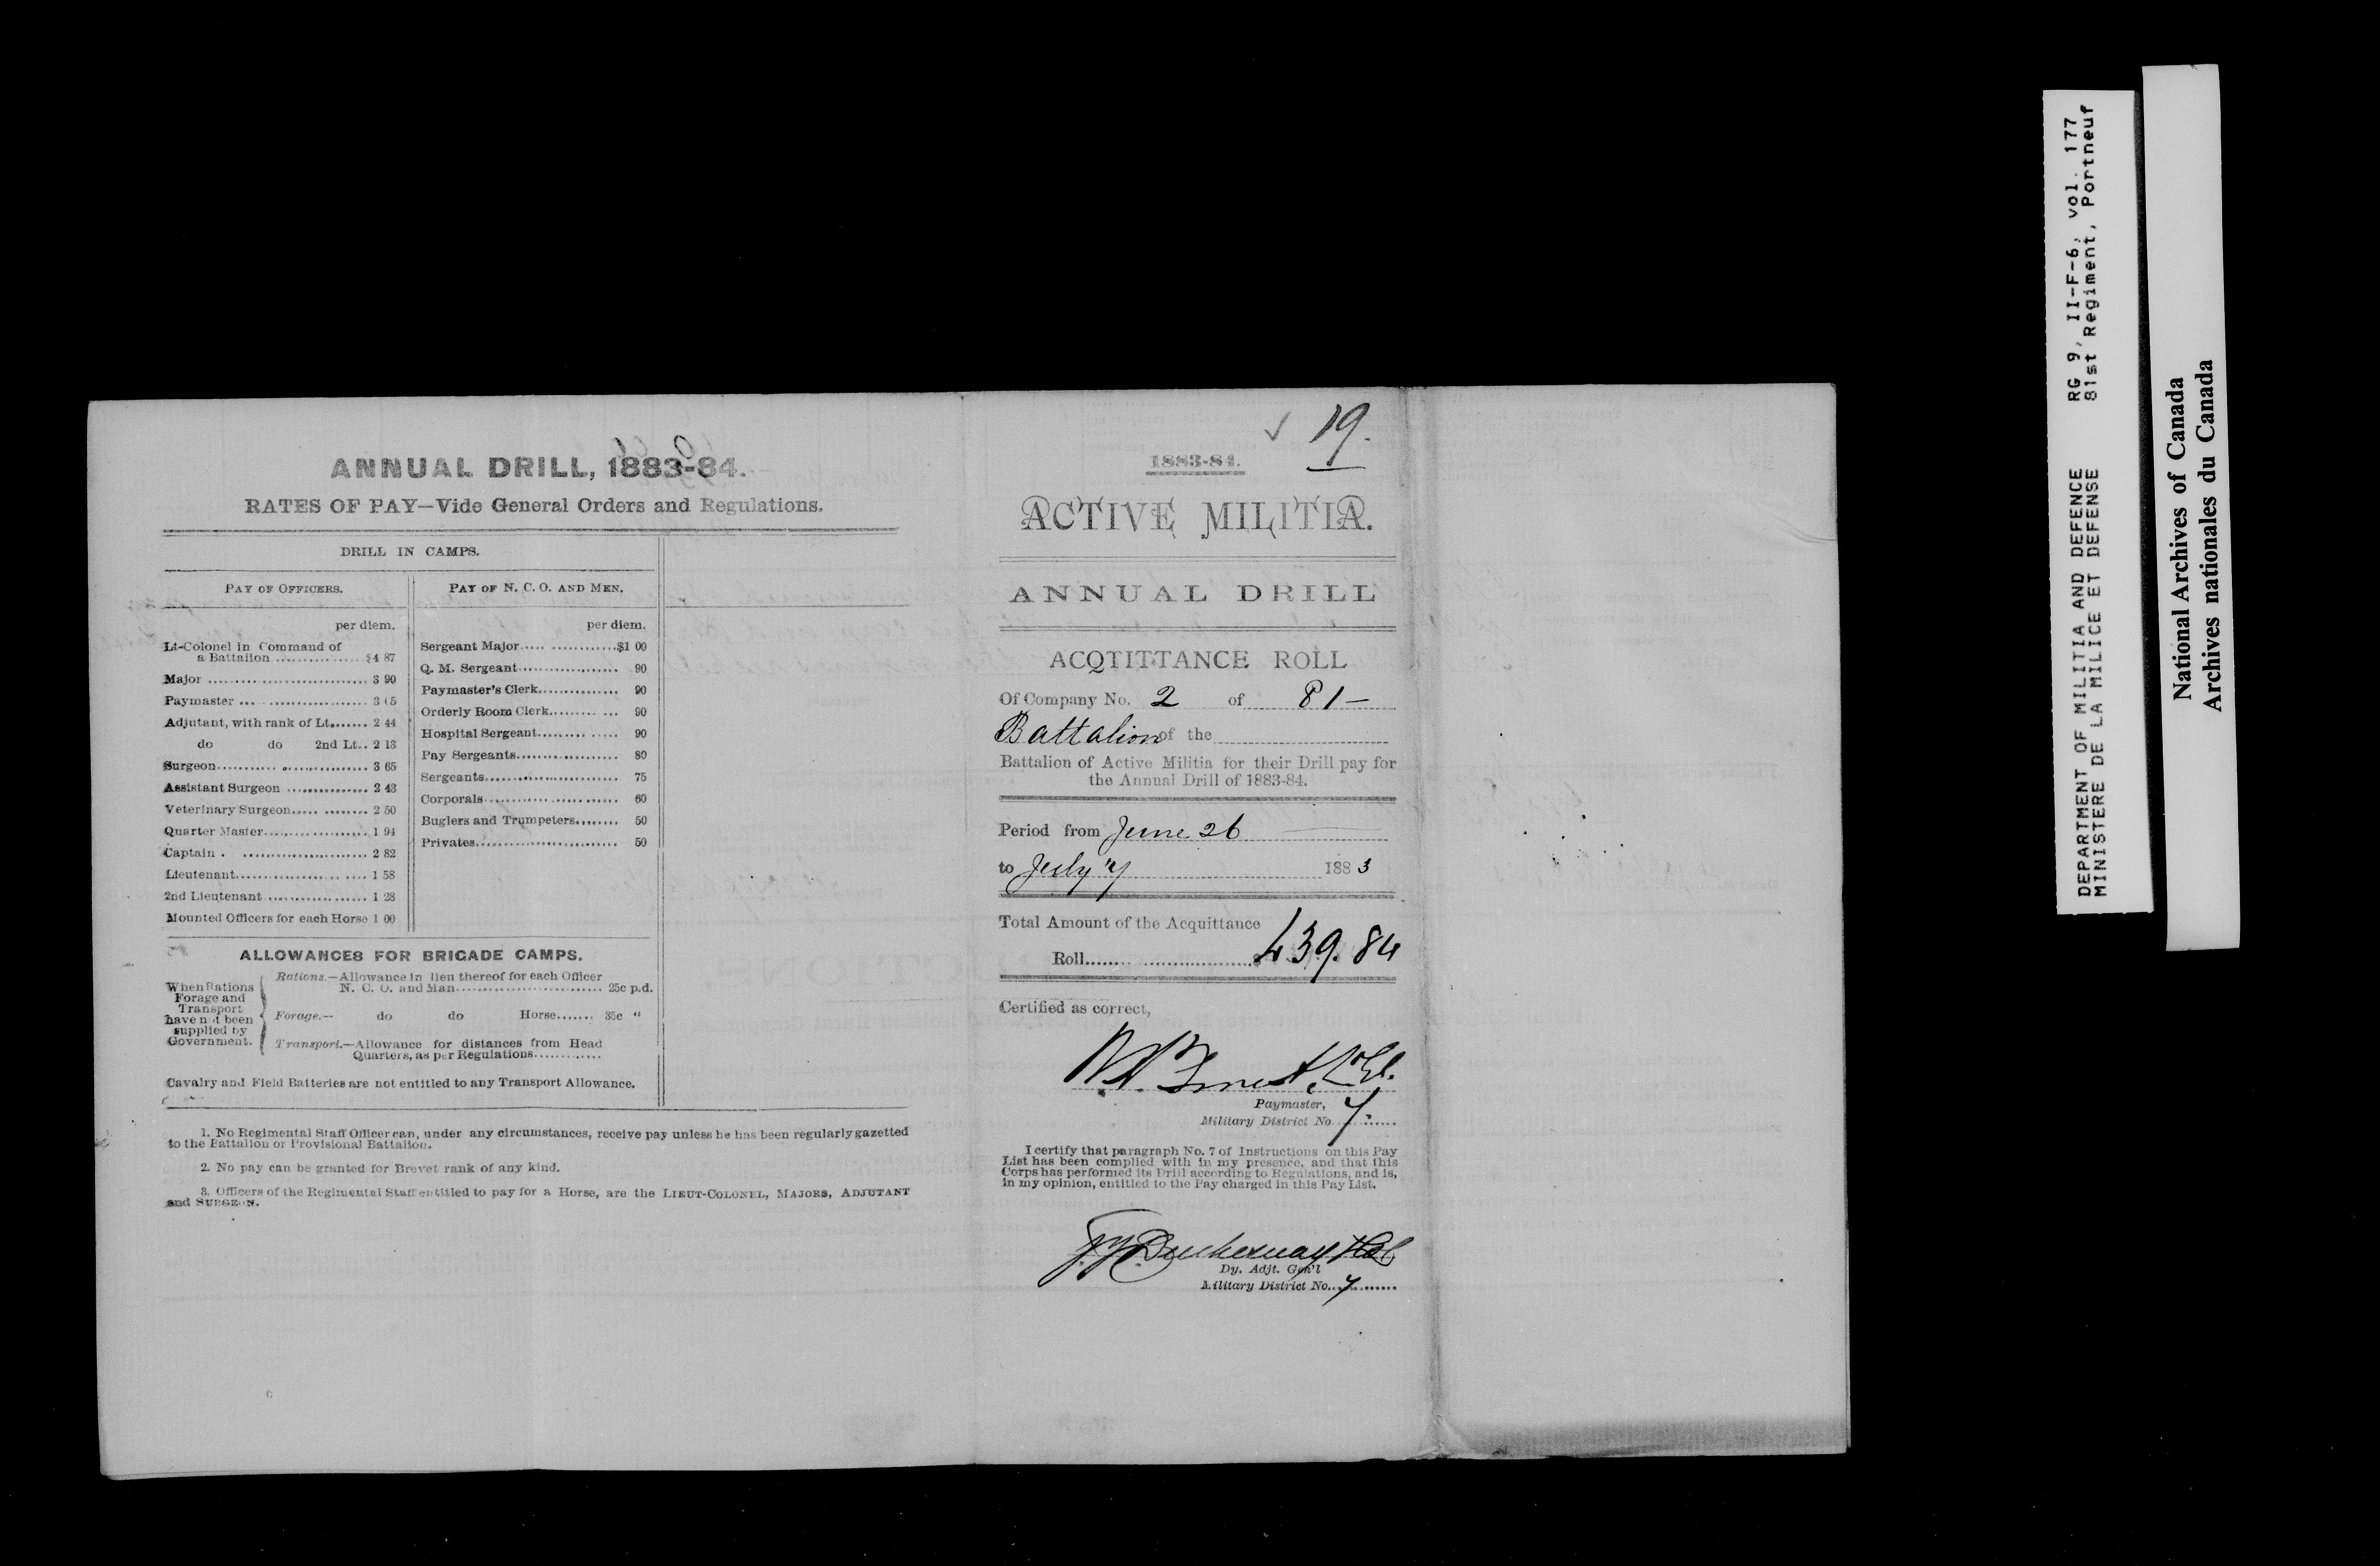 ANNUAL DRILL, 1883-84.
RATES OF PAY—Vide General Orders and Regulations.
DRILL IN CAMPS.
PAY OF OFFICERS.
per diem.
Lt-Colonel in Command of
a Battalion ............... $4 87
Major ............... 3 90
Paymaster ............... 3 65
Adjutant, with rank of Lt....... 2 44
do do 2nd Lt.. 2 13
Surgeon............... 3 65
Assistant Surgeon ............... 2 43
Veterinary Surgeon............... 2 50
Quarter Master............... 1 94
Captain . ............... 2 82
Lieutenant............... 1 58
2nd Lieutenant ............... 1 28
Mounted Officers for each Horse 1 00
PAY OF N. C. O. AND MEN.
per diem.
Sergeant Major............... $1 00
Q. M. Sergeant............... 90
Paymaster's Clerk............... 90
Orderly Room Clerk............... 90
Hospital Sergeant............... 90
Pay Sergeants............... 80
Sergeants............... 75
Corporals............... 60
Buglers and Trumpeters........ 50
Privates............... 50
ALLOWANCES FOR BRIGADE CAMPS.
When Rations
Forage and
Transport
have not been
supplied by
Government.
Rations.—Allowance in lieu thereof for each Officer
N. C. O. and Man............... 25c p.d.
Forage.— do do Horse....... 35c "
Transport.—Allowance for distances from Head
Quarters, as per Regulations.............
Cavalry and Field Batteries are not entitled to any Transport Allowance.
1. No Regimental Staff Officer can, under any circumstances, receive pay unless he has been regularly gazetted
to the Battalion or Provisional Battalion.
2. No pay can be granted for Brevet rank of any kind.
3. Officers of the Regimental Staff entitled to pay for a Horse, are the LIEUT-COLONEL, MAJORS, ADJUTANT
and SURGEON.
✓ 19.
1883-84.
ACTIVE MILITIA.
ANNUAL DRILL
ACQTITTANCE ROLL
Of Company No. 2 of 81—
Battalion of the
Battalion of Active Militia for their Drill pay for
the Annual Drill of 1883-84.
Period from June 26
to July 7 1883
Total Amount of the Acquittance
Roll............... 439.84
Certified as correct,
Paymaster,
Military District No. 7.
I certify that paragraph No. 7 of Instructions on this Pay
List has been complied with in my presence, and that this
Corps has performed its Drill according to Regulations, and is,
in my opinion, entitled to the Pay charged in this Pay List.
Duchesnay
Dy. Adjt. Gen'l
Military District No. 7
DEPARTMENT OF MILITIA AND DEFENCE RG 9, II-F-6, vol. 177
MINISTERE DE LA MILICE ET DEFENSE 81st Regiment, Portneuf
National Archives of Canada
Archives nationales du Canada